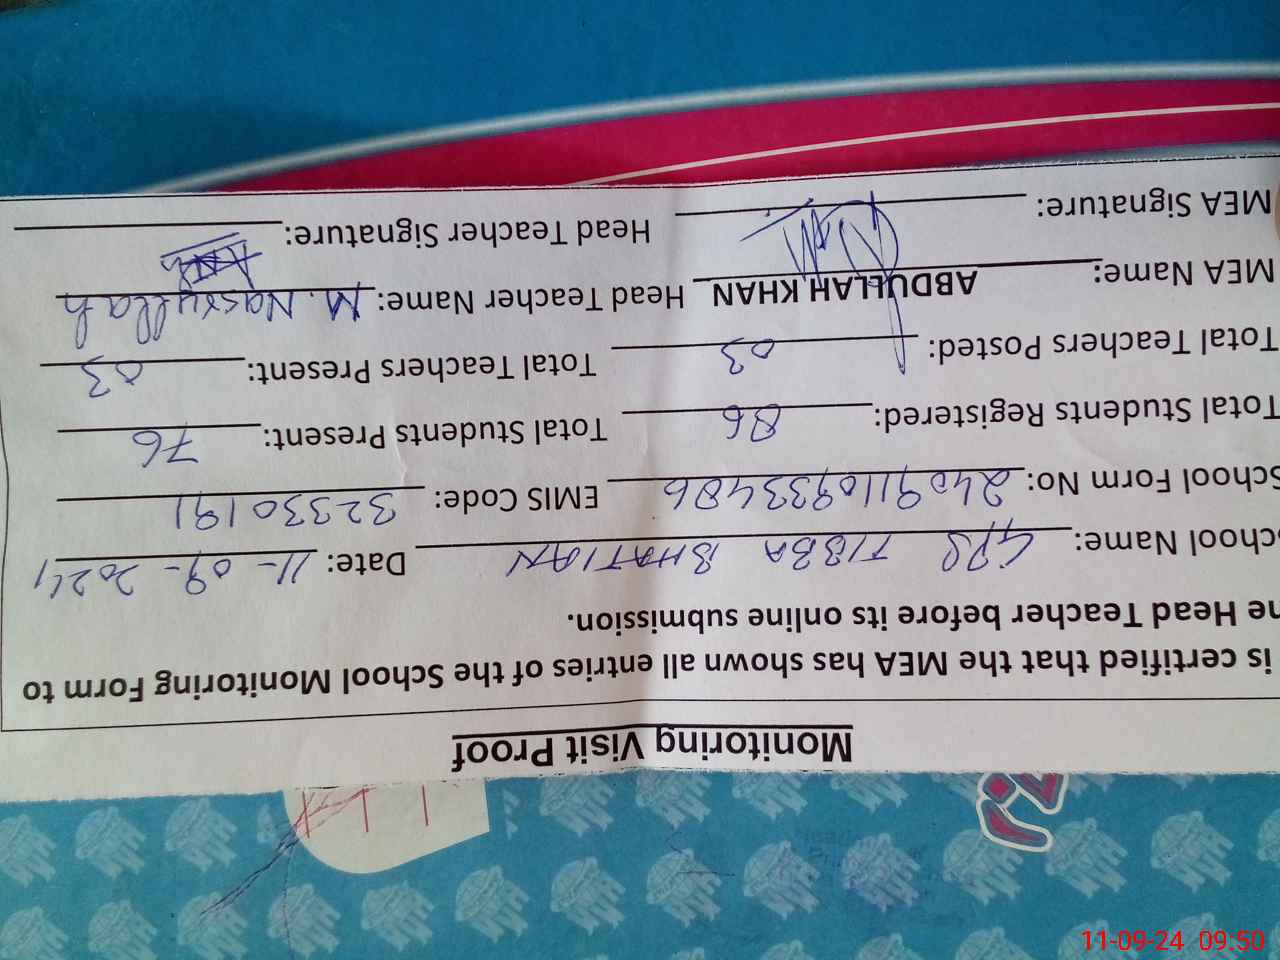 Monitoring Visit Proof
is certified that the MEA has shown all entries of the School Monitoring Form to
he Head Teacher before its online submission.
chool Name: GPS TIBBA BHATIAN Date: 11-09-2024
School Form No: 240911093348 EMIS Code: 32330191
Total Students Registered: 86 Total Students Present: 76
Total Teachers Posted: 03 Total Teachers Present: 03
MEA Name: ABDULLAH KHAN Head Teacher Name: M. Nasrullah
MEA Signature: Head Teacher Signature:
11-09-24 09:50